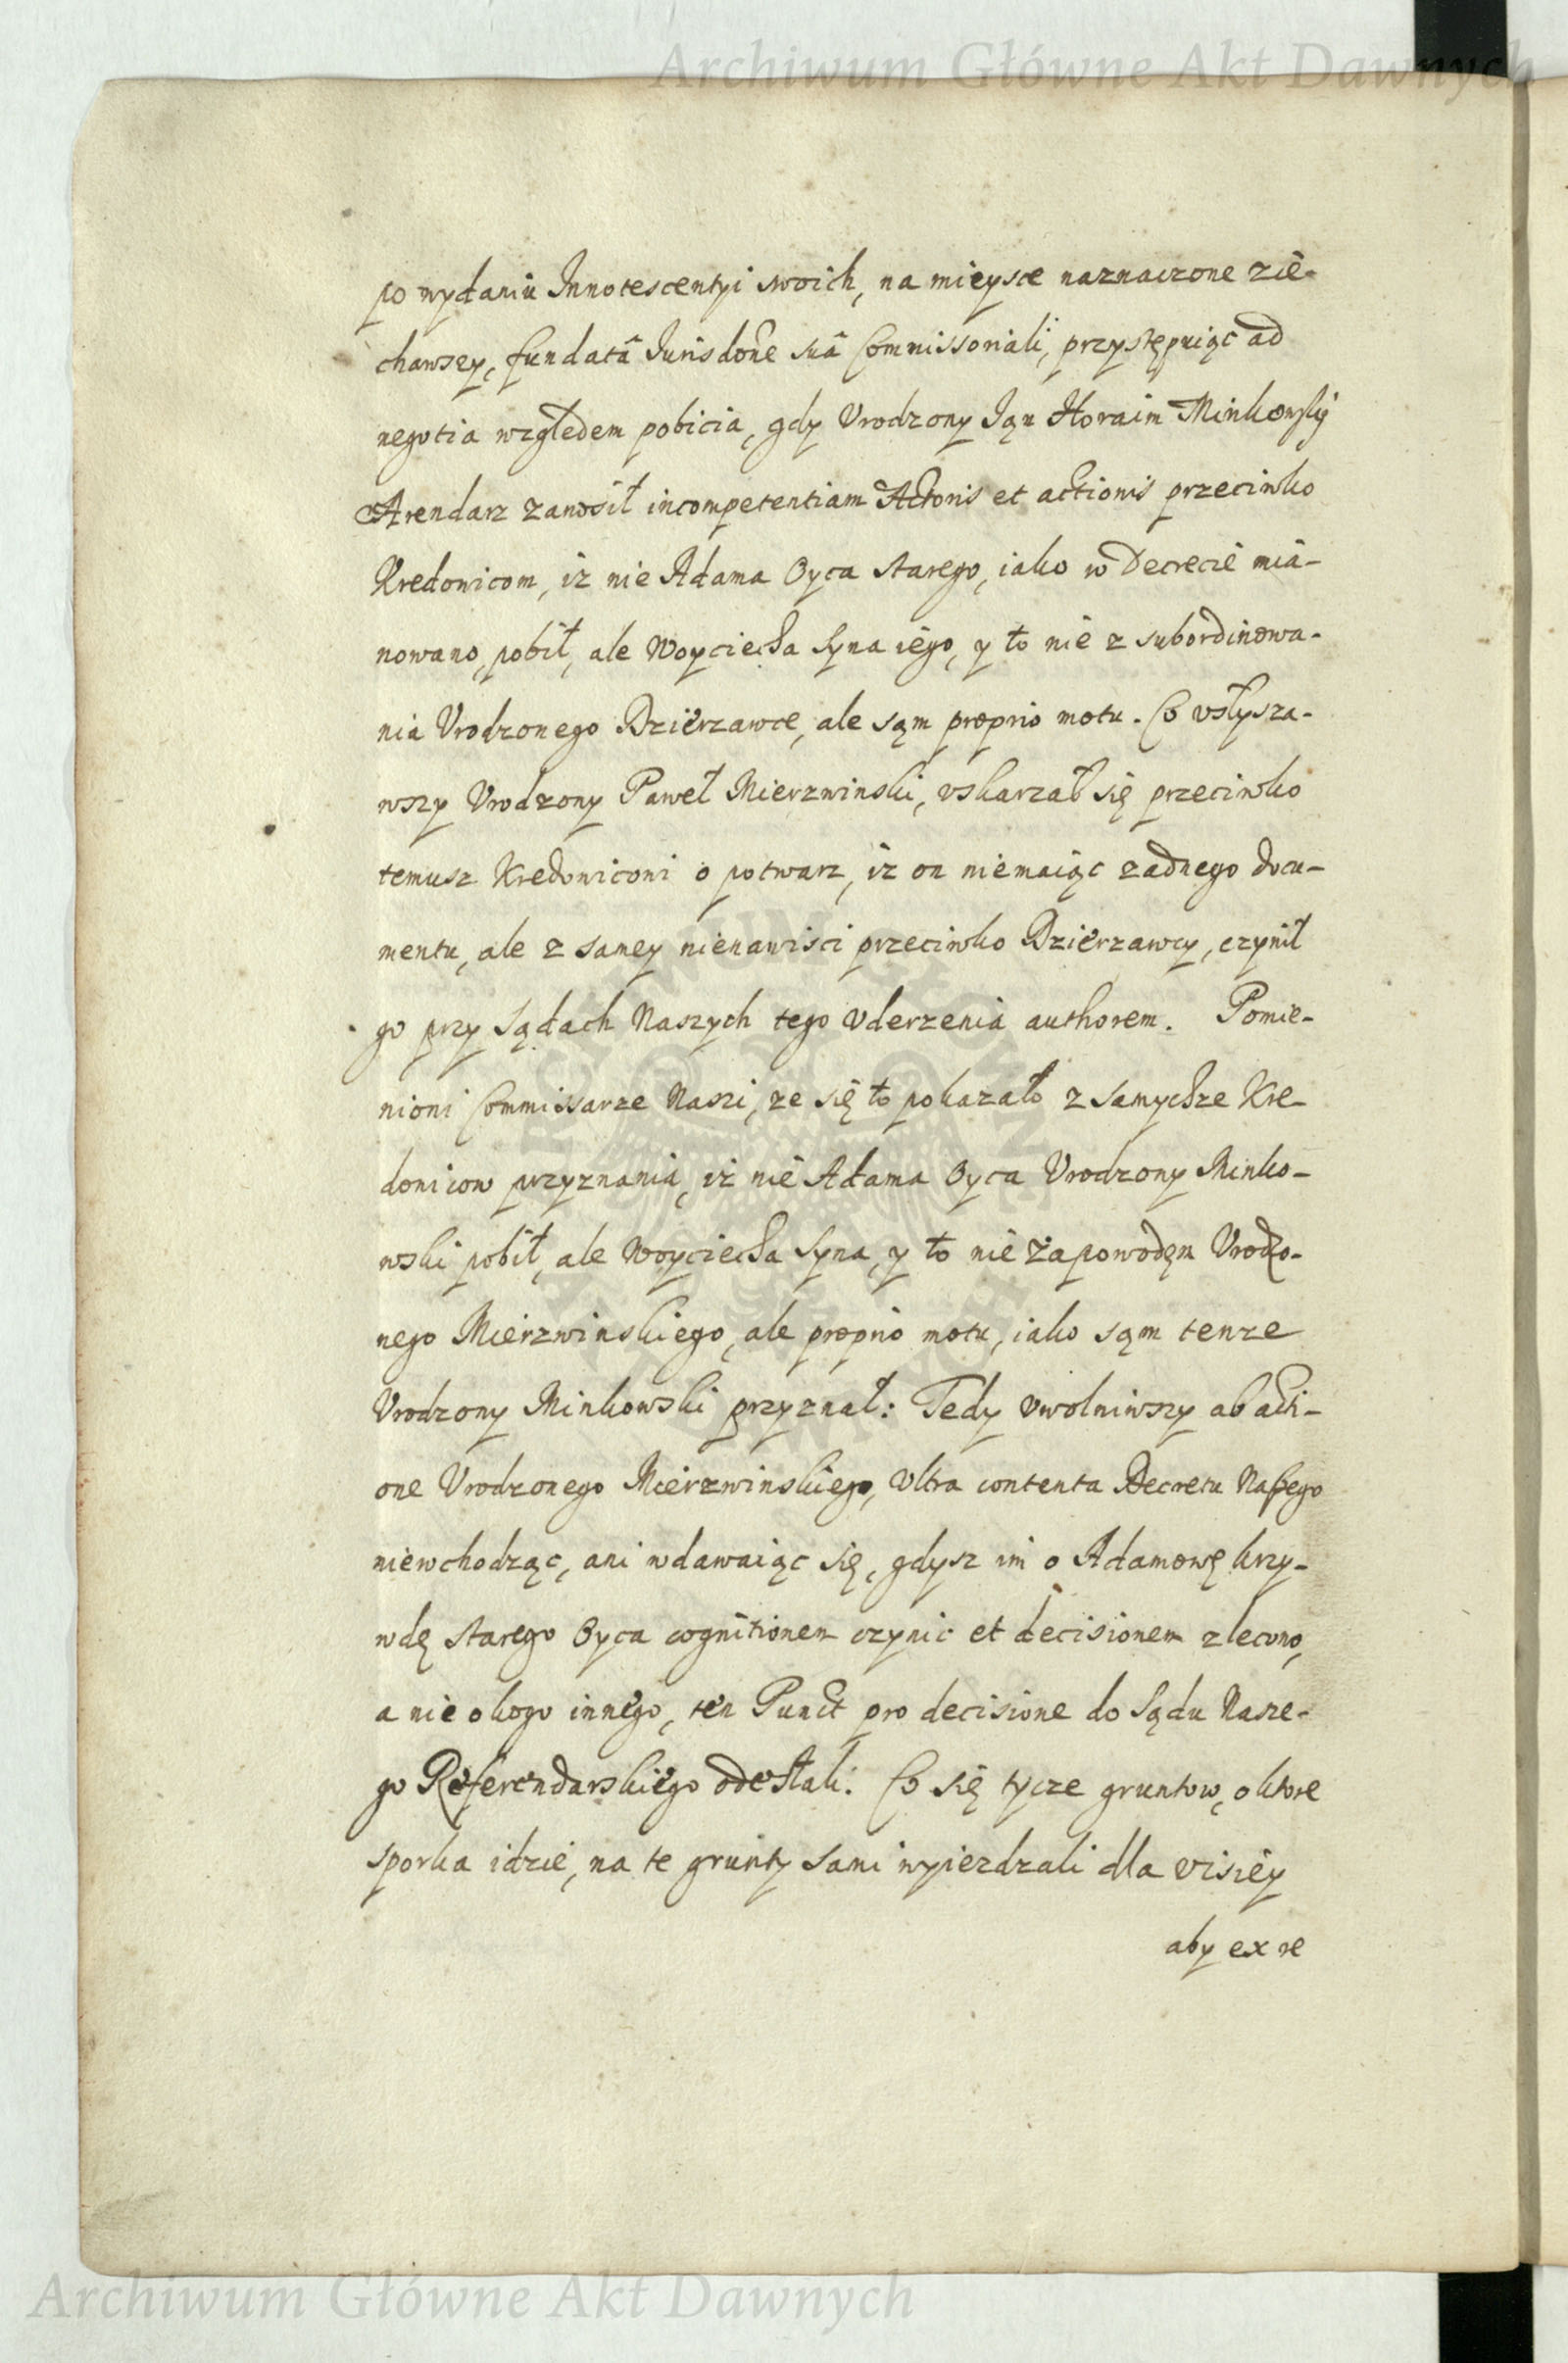 Archiwum Główne Akt Dawnych
po wydaniu Innotescentyi swoich, na mieysce naznaczone zie-
chawszy, fundatâ Jurisdone suâ Commissoriali, przystępuiąc ad
negotia względem pobicia, gdy Vrodzony Jąn Horaim Minkowsky
Arendarz zanosił incompetentiam Actoris et actionis przeciwko
Kredonicom, iz nie Adama Oyca starego, iako w Decrecie mia-
nowano, pobił, ale Woyciecha Syna iego, y to nie z subordinowa-
nia Vrodzonego Dzierzawce, ale sąm proprio motu. Co vsłysza-
wszy Vrodzony Paweł Mierzwinski, vskarzał się przeciwko
temusz Kredoniconi o potwarz, iz on niemaiąc zadnego docu-
mentu, ale z samey nienawisci przeciwko Dzierzawcy, czynił
go przy sądach Naszych tego vderzenia authorem. Pomie-
nioni Commissarze Naszi, ze się to pokazało z samychze Kre-
doniow przyznania, iz nie Adama Oyca Vrodzony Minko-
wski pobił, ale Woyciecha Syna, y to nie zapowodęm Vrodzo-
nego Mierzwinskiego, ale proprio motu, iako sąm tenze
Vrodzony Minkowski przyznał: Tedy vwolniwszy ab acti-
one Vrodzonego Mierzwinskiego, vltra contenta Decretu Naßego
niewchodząc, ani wdawaiąc się, gdysz im o Adamowę krzy-
wdę starego Oyca cognitionem czynic et decisionem zlecono,
a nie okogo innego, ten Punct pro decisione do Sądu Nasze-
go Referendarskiego odesłali. Co się tycze gruntow, oktore
sporka idzie, na te grunty sami wyiezdzali dla visiey
aby ex re
Archiwum Główne Akt Dawnych